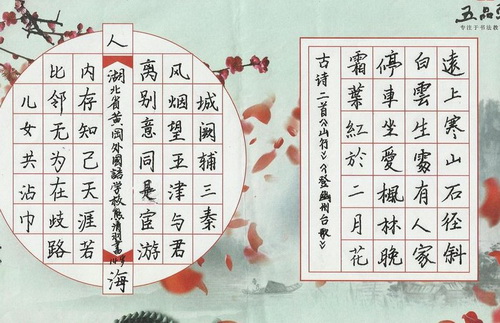 五品
专注于书法教
遠上寒山石径斜
白雲生處有人家
停車坐愛楓林晚
霜葉紅於二月花
古诗二首《山行》《登幽州台歌》
城阙辅三秦
风烟望五津与君
离别意同是宦游
人
湖北省黄冈外國語学校
海
内存知己天涯若
比邻无为在歧路
儿女共沾巾